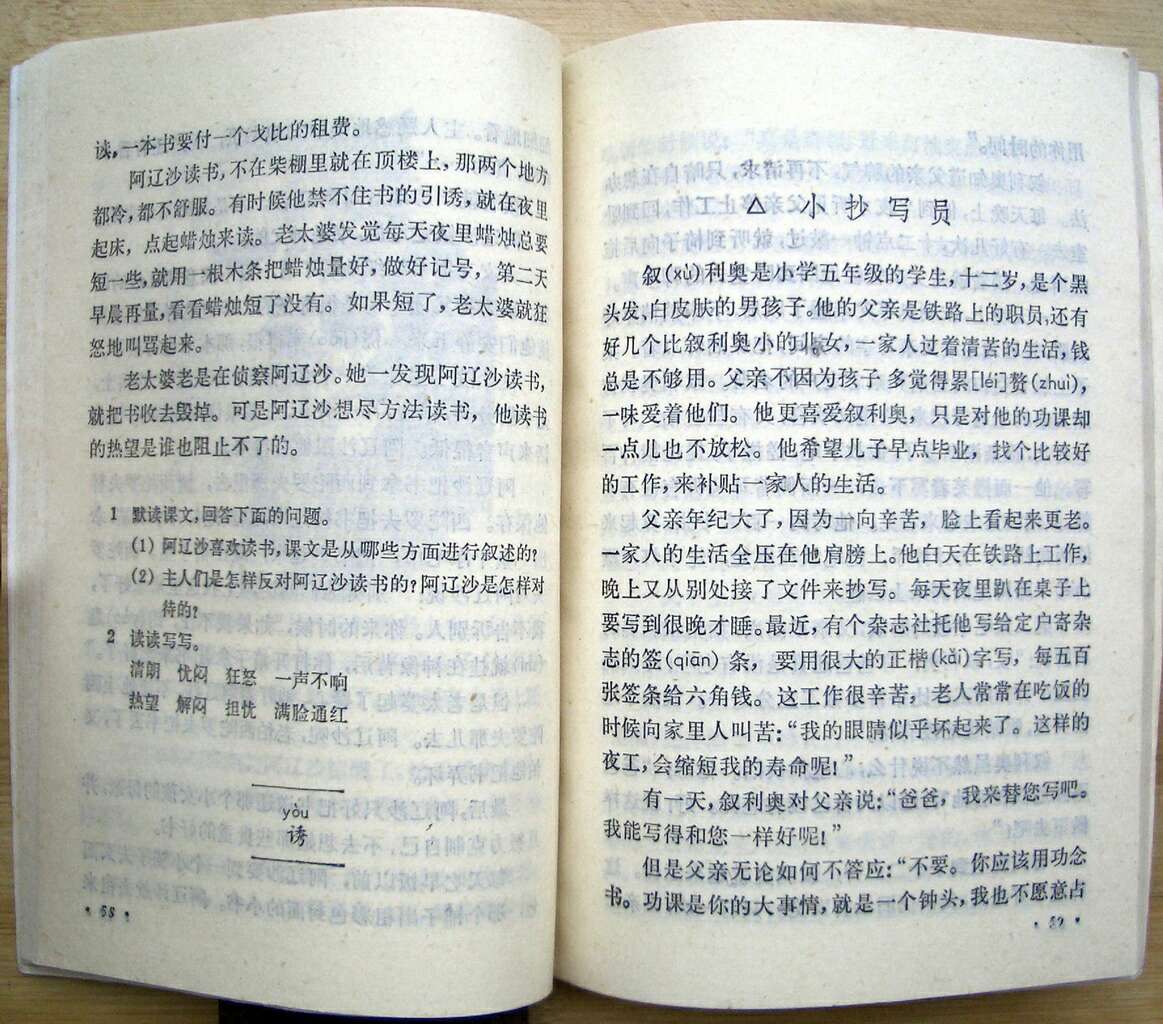 读,一本书要付一个戈比的租费。
阿辽沙读书,不在柴棚里就在顶楼上,那两个地方
都冷,都不舒服。有时候他禁不住书的引诱,就在夜里
起床,点起蜡烛来读。老太婆发觉每天夜里蜡烛总要
短一些,就用一根木条把蜡烛量好,做好记号,第二天
早晨再量,看看蜡烛短了没有。如果短了,老太婆就狂
怒地叫骂起来。
老太婆老是在侦察阿辽沙。她一发现阿辽沙读书,
就把书收去毁掉。可是阿辽沙想尽方法读书,他读书
的热望是谁也阻止不了的。
1 默读课文,回答下面的问题。
(1) 阿辽沙喜欢读书,课文是从哪些方面进行叙述的?
(2) 主人们是怎样反对阿辽沙读书的?阿辽沙是怎样对
待的?
2 读读写写。
清朗 忧闷 狂怒 一声不响
热望 解闷 担忧 满脸通红
yòu
诱
· 58 ·
△ 小抄写员
叙(xù)利奥是小学五年级的学生,十二岁,是个黑
头发、白皮肤的男孩子。他的父亲是铁路上的职员,还有
好几个比叙利奥小的儿女,一家人过着清苦的生活,钱
总是不够用。父亲不因为孩子多觉得累[léi]赘(zhuì),
一味爱着他们。他更喜爱叙利奥,只是对他的功课却
一点儿也不放松。他希望儿子早点毕业,找个比较好
的工作,来补贴一家人的生活。
父亲年纪大了,因为一向辛苦,脸上看起来更老。
一家人的生活全压在他肩膀上。他白天在铁路上工作,
晚上又从别处接了文件来抄写。每天夜里趴在桌子上
要写到很晚才睡。最近,有个杂志社托他写给定户寄杂
志的签(qiān)条,要用很大的正楷(kǎi)字写,每五百
张签条给六角钱。这工作很辛苦,老人常常在吃饭的
时候向家里人叫苦:“我的眼睛似乎坏起来了。这样的
夜工,会缩短我的寿命呢!”
有一天,叙利奥对父亲说:“爸爸,我来替您写吧。
我能写得和您一样好呢!”
但是父亲无论如何不答应:“不要。你应该用功念
书。功课是你的大事情,就是一个钟头,我也不愿意占
· 59 ·